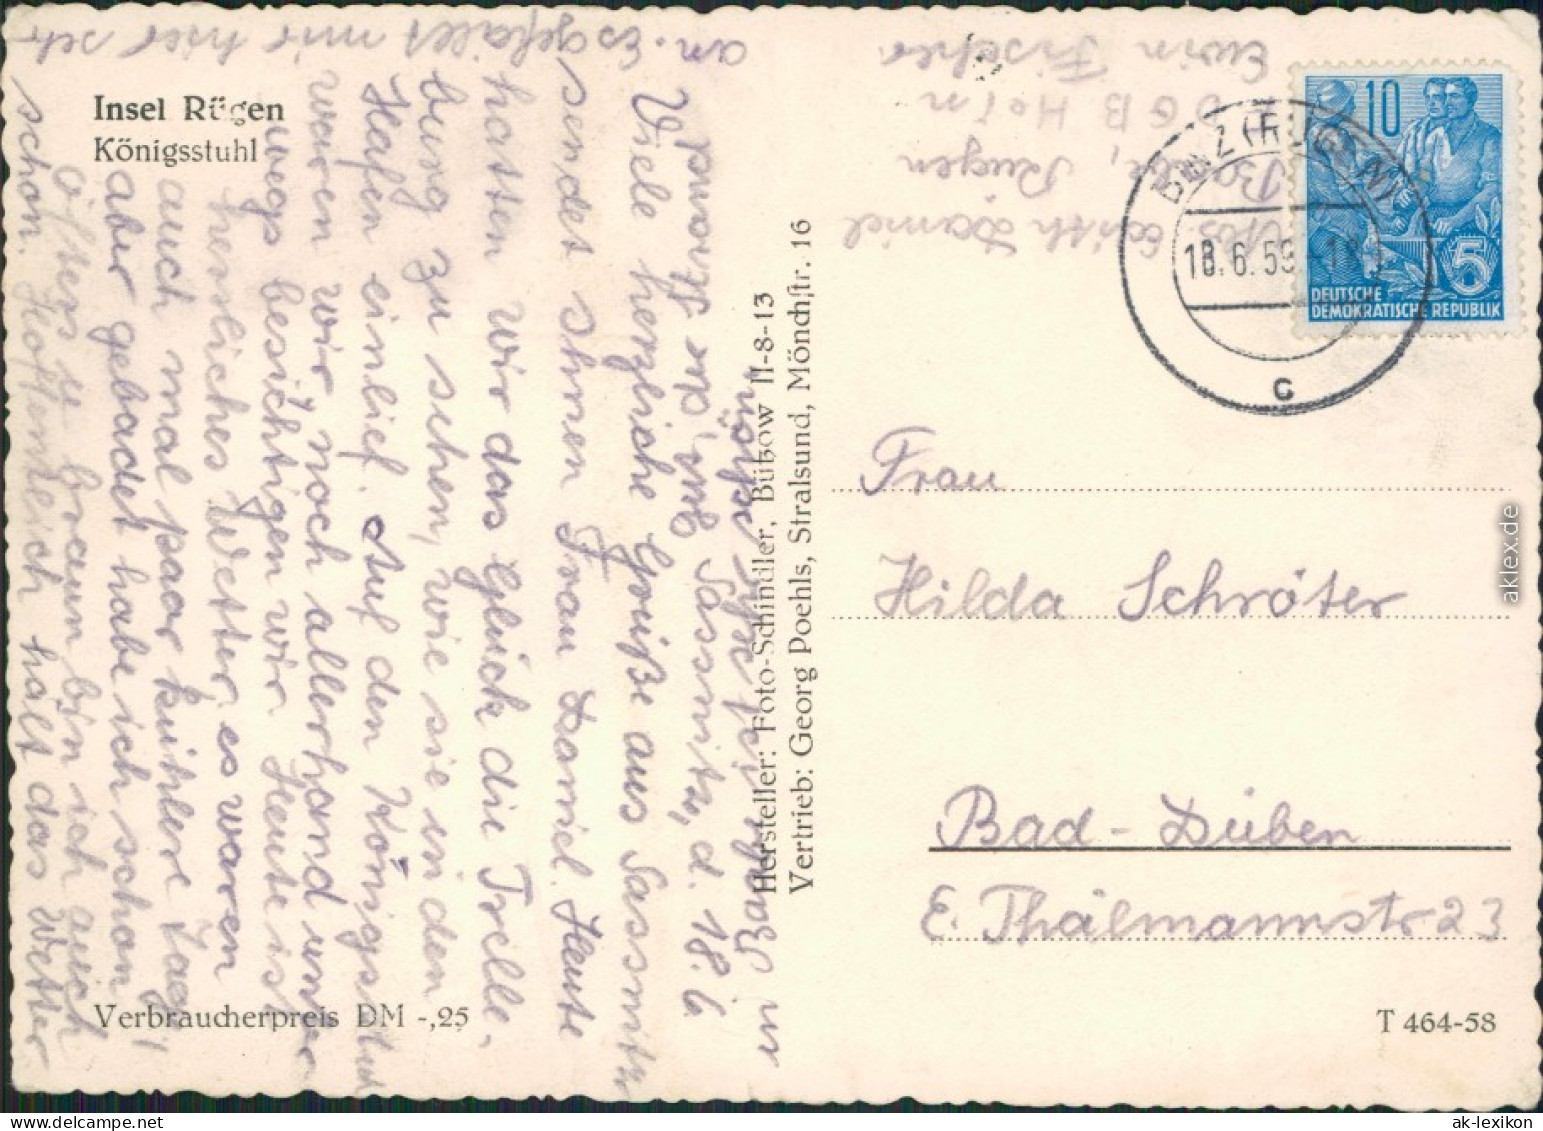 Insel Rügen
Königsstuhl
Sassnitz, d. 18.6
Viele herzliche Grüße aus Sassnitz
sendet Ihnen Frau Daniel. Heute
hatten wir das Glück die Trelle-
burg zu sehen, wie sie in den
Hafen einlief. Auf den Königsstuhl
waren wir noch allerhand unter-
wegs besichtigen wir. Heute ist
herrliches Wetter, es waren
auch mal paar kühlere Tage,
aber gebadet habe ich schon
öfters u. braun bin ich auch
schon. Hoffentlich hält das Wetter
an. Es gefällt mir hier sehr
in Baabe ist sehr schön
der Strand
Verbraucherpreis DM -,25
Hersteller: Foto-Schindler, Bützow II-8-13
Vertrieb: Georg Poehls, Stralsund, Mönchstr. 16
Edith Daniel
Baabe, Rügen
FDGB Heim
Erwin Fischer
BINZ (RÜGEN)
18.6.59.-18
c
10
5
DEUTSCHE
DEMOKRATISCHE REPUBLIK
Frau
Hilda Schröter
Bad-Düben
E. Thälmannstr 23
T 464-58
aklex.de
ak-lexikon